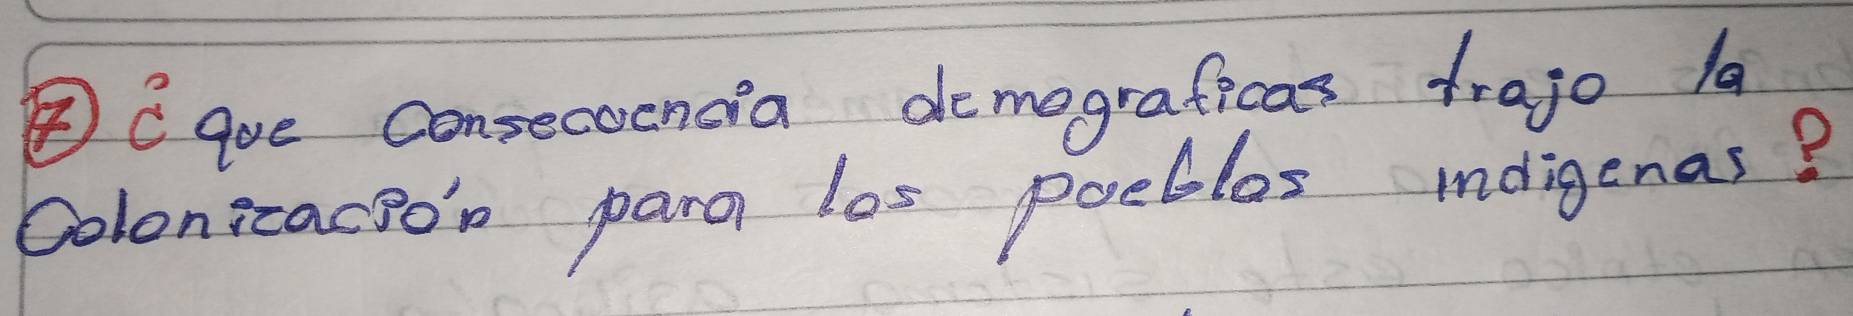 ⑦ ¿que consecuencia demograficas trajo la
Colonización para los pueblos indigenas?